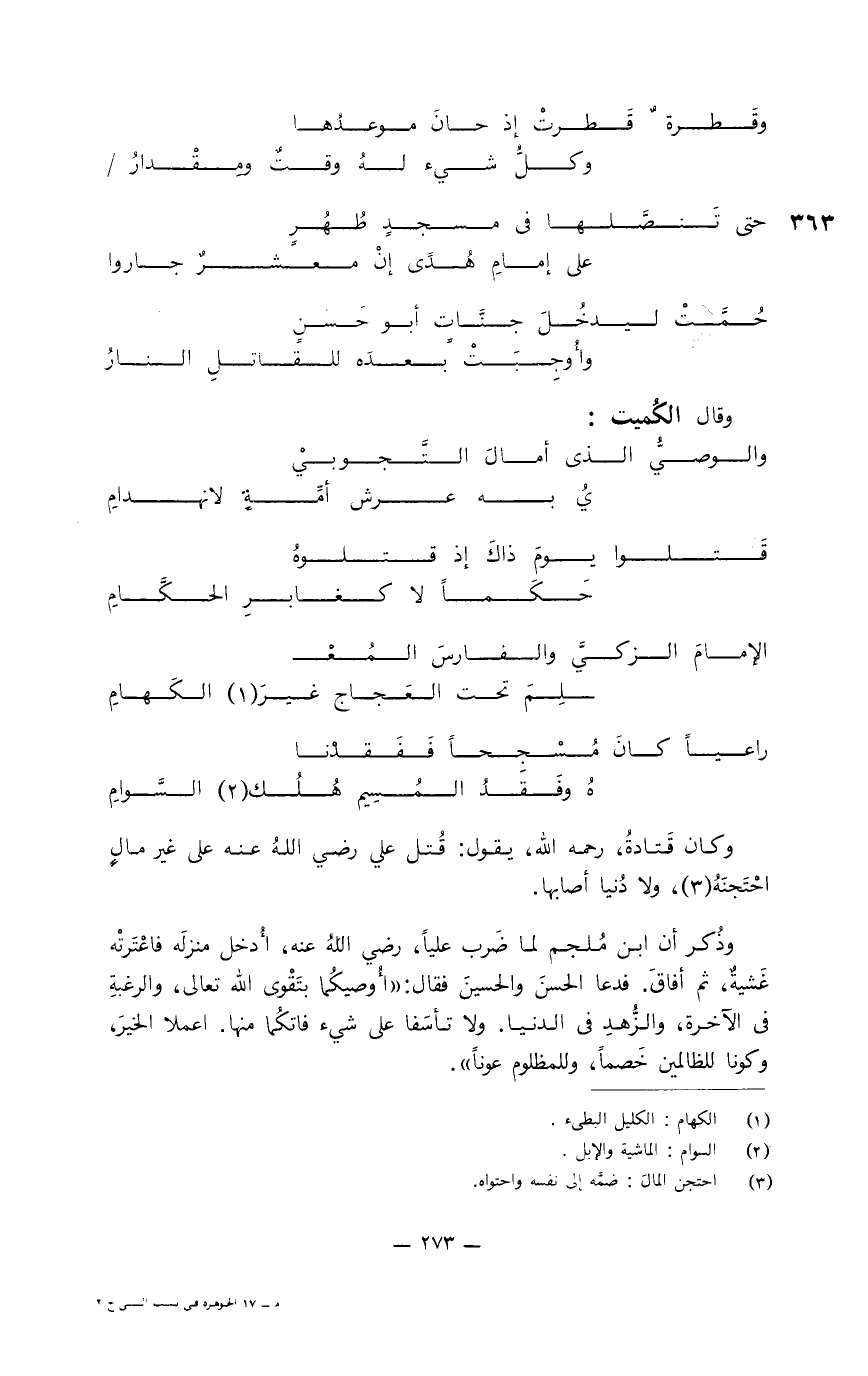 وقَطرة ٌ قَطرتْ إذ حانَ موعدُها
وكلُّ شيء لهُ وقتٌ ومِقْدارُ /
٣٦٣ حتى تَنصَّلها فى مسجدٍ طُهُرٍ
على إمامِ هُدًى إنْ معشرٌ جاروا
حُمَّتْ ليدخُلَ جنَّاتٍ أبو حَسَنٍ
وأُوجِبَتْ بعده للقاتلِ النارُ
وقال الكُميت :
والوصيُّ الذى أمالَ التَّجوبيْ
يُ به عرش أمَّةٍ لانهدامِ
قَتلوا يومَ ذاكَ إذ قتلوهُ
حَكَماً لا كغابرِ الحكَّامِ
الإمامَ الزكيَّ والفارسَ المُعْـ
ـلِمَ تحت العَجاج غيرَ(١) الكَهامِ
راعياً كانَ مُسْجِحاً فَفَقدْنا
هُ وفَقْدُ المُسِيمِ هُلْك(٢) السَّوامِ
وكان قَتادةُ، رحمه الله، يقول: قُتل علي رضي اللهُ عنه على غير مالٍ
احْتَجنَهُ(٣)، ولا دُنيا أصابها.
وذُكر أن ابن مُلجم لما ضَرب علياً، رضي اللهُ عنه، أُدخل منزلَه فاعْتَرتْه
غَشيةٌ، ثم أفاقَ. فدعا الحسنَ والحسينَ فقال:«أُوصيكُما بتَقْوى الله تعالى، والرغبةِ
فى الآخرة، والزُّهدِ فى الدنيا. ولا تأسَفا على شيء فاتكُما منها. اعملا الخيرَ،
وكونا للظالمين خَصماً، وللمظلوم عوناً».
(١) الكهام : الكليل البطيء .
(٢) السوام : الماشية والإبل .
(٣) احتجن المالَ : ضمَّه إلى نفسه واحتواه.
— ٢٧٣ —
م – ١٧ الجوهرة في نسب النبي ج ٢